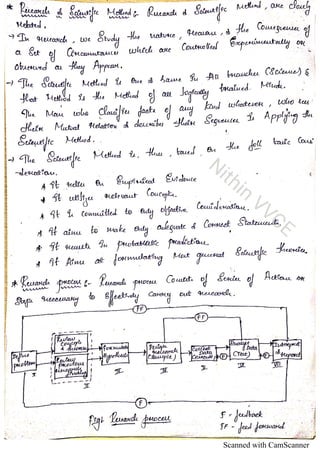 * Research & Scientific Method :- Research & Scientific Method, are closely
related.
→ In research, we Study the nature, Reason, & the Consequences of
a Set of Circumstances which are Controlled Experimentally or
observed as they Appear.
→ The Scientific Method is one & Same In All branches (Science) &
that Method is the Method of all logically trained Minds.
The Man who Classifies facts of any kind whatever, who sees
their Mutual Relation & describes their Sequences Is Applying the
Scientific Method.
→ The Scientific Method is, thus, based on the foll basic Cons
-ideration.
* It relies On Empirical Evidence
* It utilizes relevant Concepts.
* It is committed to only objective Considerations.
* It aims to make only adequate & Correct Statements.
* It results In probabilistic prediction.
* It Aims at formulating Most general Scientific theories.
* Research process :- Research process Consists of Series of Actions or
Steps necessary to Effectively carry out research.
FF
FF
Define
problem
I
Review
Concepts
& theories
Review
previous
research
finding
II
Formulate
Hypothesis
III
Design
Research
(Sample)
IV
Collect
Data
V
F
Analyse
Data
(Test)
VI
F
Interpret
& Report
VII
F
Fig: Research process
F - feedback
FF - feed forward
Nithin VVCE
Scanned with CamScanner